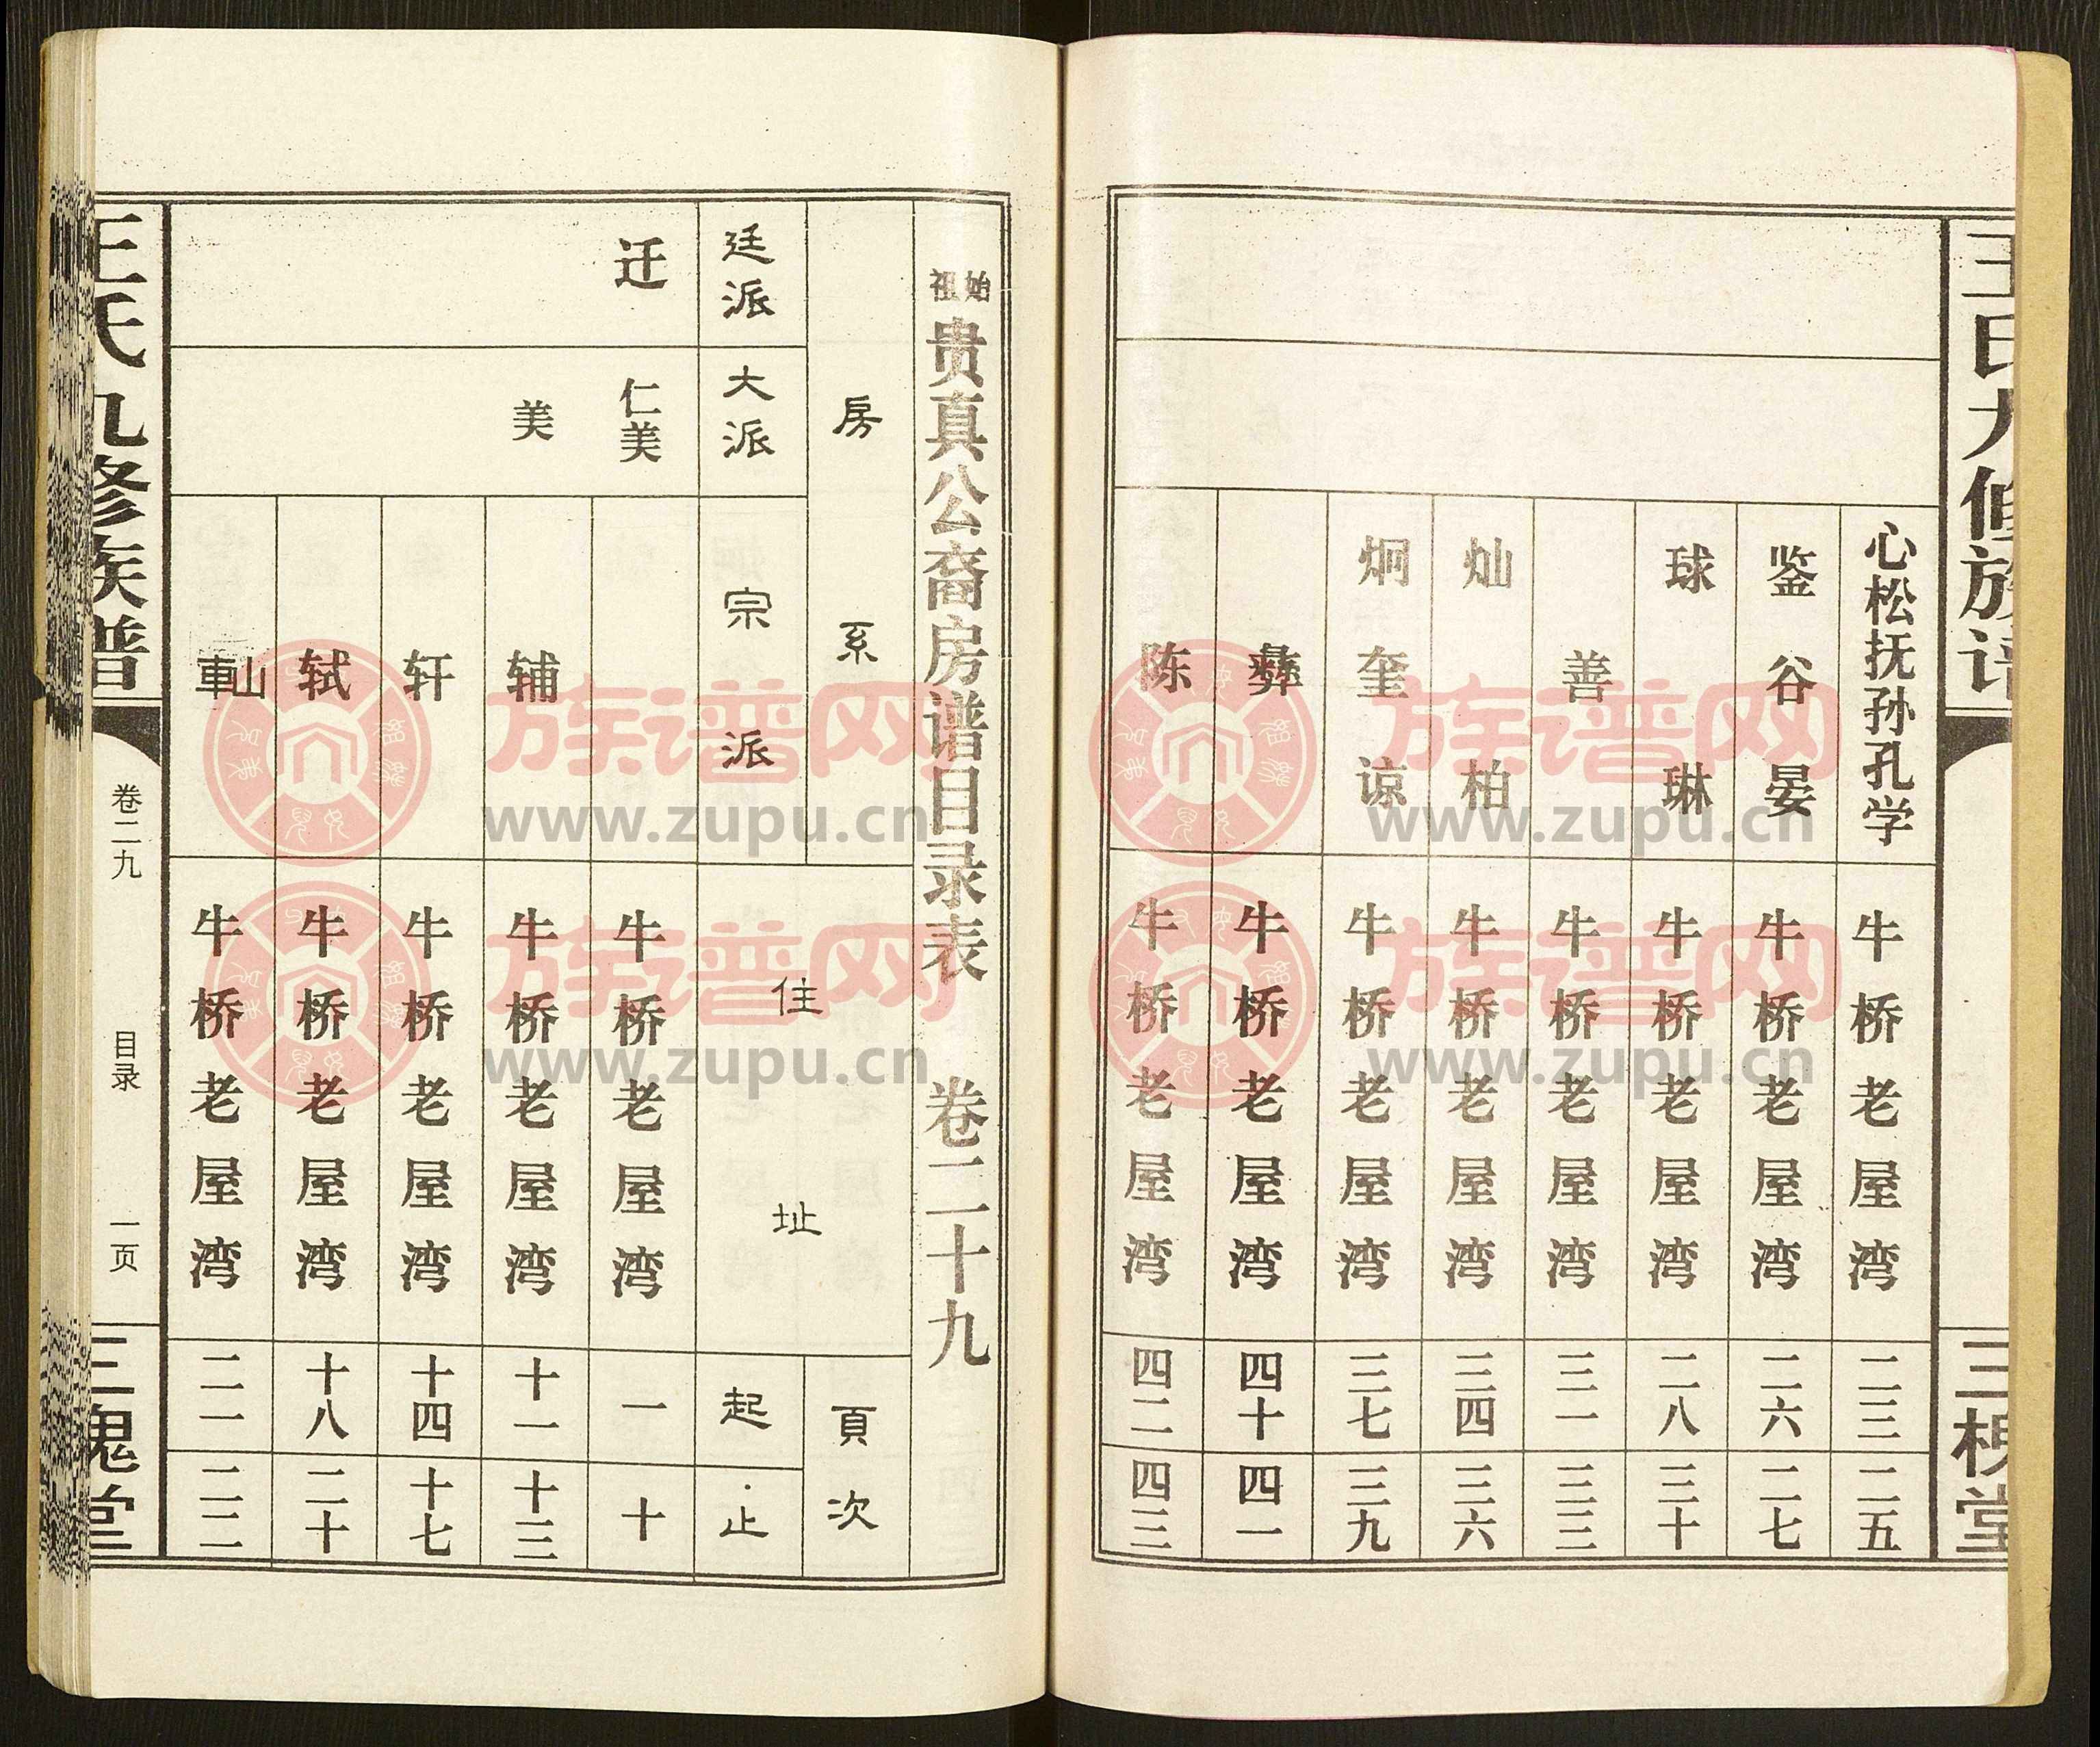 始祖贵真公裔房谱目录表 卷二十九
房系 頁次
廷派 大派 宗派 住址 起·止
迁 仁美 牛桥老屋湾 一 十
美 辅 牛桥老屋湾 十一 十三
轩 牛桥老屋湾 十四 十七
轼 牛桥老屋湾 十八 二十
牛桥老屋湾 二一 二二
王氏九修族谱 卷二九 目录 一页 三槐堂
王氏九修族谱 三槐堂
心松抚孙孔学 牛桥老屋湾 二三 二五
鉴谷晏 牛桥老屋湾 二六 二七
球琳 牛桥老屋湾 二八 三十
善 牛桥老屋湾 三一 三三
灿柏 牛桥老屋湾 三四 三六
炯奎谅 牛桥老屋湾 三七 三九
彝 牛桥老屋湾 四十 四一
陈 牛桥老屋湾 四二 四三
族谱网
www.zupu.cn
族谱网
www.zupu.cn
族谱网
www.zupu.cn
族谱网
www.zupu.cn